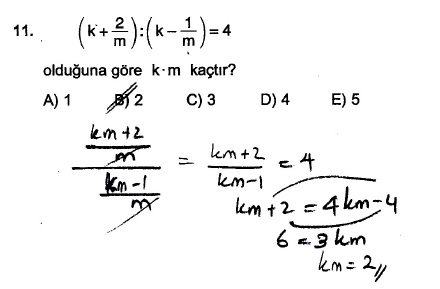 11. (k + 2/m) : (k - 1/m) = 4
olduğuna göre k·m kaçtır?
A) 1 B) 2 C) 3 D) 4 E) 5
km+2/m / km-1/m = km+2/km-1 = 4
km+2 = 4km-4
6 = 3km
km = 2